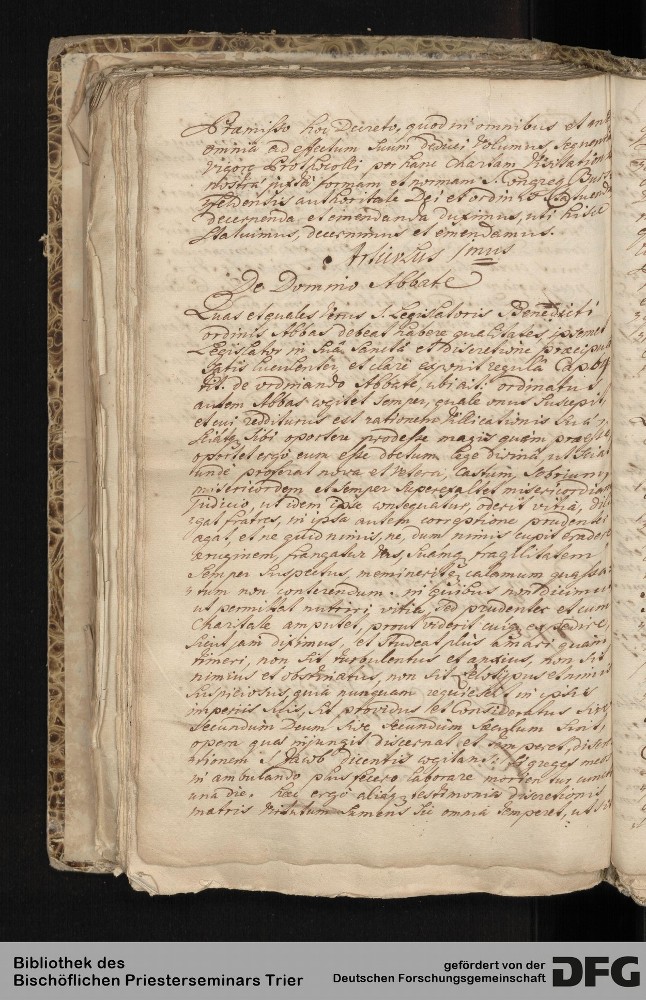 Præmisso hoc Decreto, quod in omnibus et ante
omnia ad effectum suum deduci volumus,
vigore Prothocolli per hanc chartam Visitationis
nostræ juxta formam et normam Congreg. Burs-
feldensis authoritate Dei et ordinis statuenda
decernenda et emendanda duximus, uti hisce
statuimus, decernimus et emendamus.
Articulus 1mus
De Domino Abbate
Quas et quales verus S. Legislatoris S. Benedicti
ordinis Abbas debeat habere qualitates, ipsemet
Legislator in sua sancta et discretione præcipua
satis luculenter, et clare exponit regula Cap. 64
tit. de ordinando Abbate, ubi ait: ordinatus
autem Abbas cogitet semper, quale onus suscepit,
et cui redditurus est rationem villicationis suæ,
sciatq sibi oportere prodesse magis quam præesse,
oportet ergo eum esse doctum lege divina, ut sciat
unde proferat nova et vetera, Castum, sobrium,
misericordem et semper superexaltet misericordiam
judicio, ut idem ipse consequatur, oderit vitia, dili-
gat fratres, in ipsa autem correptione prudenter
agat, et ne quid nimis, ne, dum nimis cupit eradere
æruginem, frangatur vas, suamq fragilitatem
semper suspectus, memineritq calamum quassa-
tum non conterendum. in quibus non dicimus
ut permittat nutriri vitia, sed prudenter et cum
Charitate amputet, prout viderit cuiq expedire,
sicut jam diximus, et studeat plus amari quam
timeri, non sit turbulentus et anxius, non sit
nimius et obstinatus, non sit zelotypus et nimis
suspiciosus, quia nunquam requiescet in ipsis
imperiis suis, sit providus et Consideratus sive
secundum Deum sive secundum sæculum sint,
opera quæ injungit discernat et temperet, discre-
tionem S. Jacob dicentis cogitans: si greges meos
in ambulando plus fecero laborare morientur cuncti
una die. Hæc ergo aliaq testimonia discretionis
matris virtutum sumens sic omnia temperet, ut sit
Bibliothek des
Bischöflichen Priesterseminars Trier
gefördert von der
Deutschen Forschungsgemeinschaft
DFG